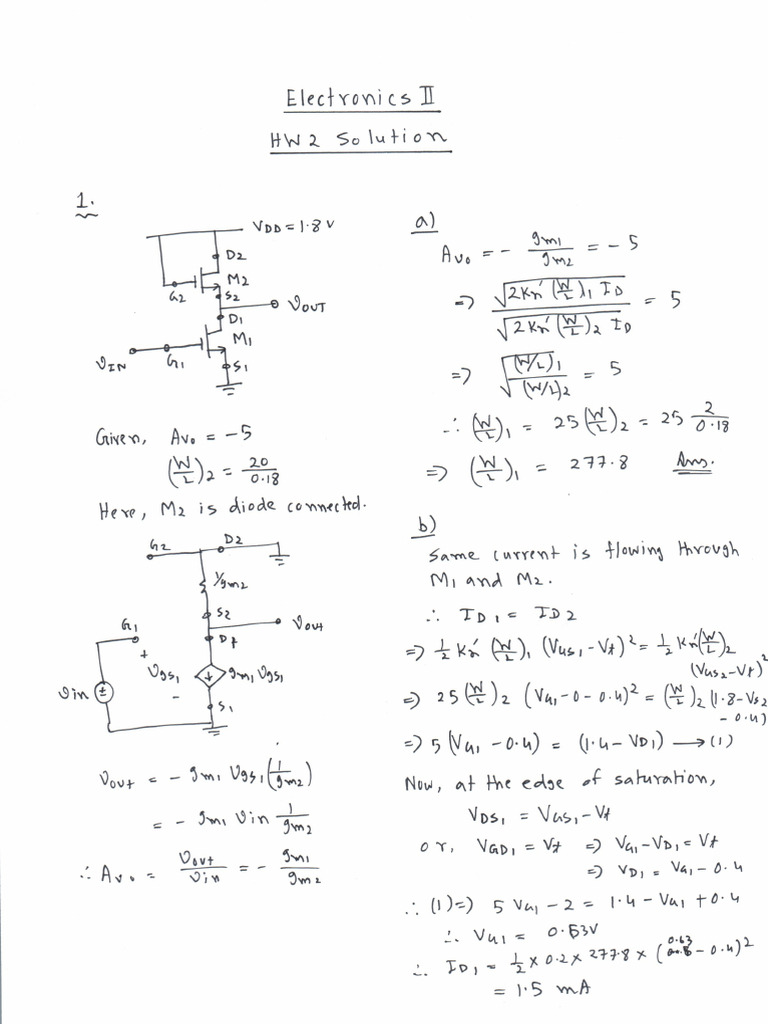 Electronics II
HW2 Solution
1.
VDD = 1.8 V
D2
M2
G2
S2
VOUT
D1
M1
VIN
G1
S1
Given, Avo = -5
(W/L)2 = 20/0.18
Here, M2 is diode connected.
G2
D2
1/gm2
S2
Vout
G1
D1
+
Vgs1
-
gm1 Vgs1
Vin
S1
Vout = - gm1 Vgs1 (1/gm2)
= - gm1 Vin 1/gm2
∴ Avo = Vout/Vin = - gm1/gm2
a)
Avo = - gm1/gm2 = -5
=> √(2Kn' (W/L)1 ID) / √(2Kn' (W/L)2 ID) = 5
=> √((W/L)1 / (W/L)2) = 5
∴ (W/L)1 = 25 (W/L)2 = 25 2/0.18
=> (W/L)1 = 277.8 Ans.
b)
Same current is flowing through
M1 and M2.
∴ ID1 = ID2
=> 1/2 Kn' (W/L)1 (VGS1 - Vt)² = 1/2 Kn' (W/L)2
(VGS2 - Vt)²
=> 25 (W/L)2 (VG1 - 0 - 0.4)² = (W/L)2 (1.8 - VS2
- 0.4)
=> 5 (VG1 - 0.4) = (1.4 - VD1) → (1)
Now, at the edge of saturation,
VDS1 = VGS1 - Vt
or, VGD1 = Vt => VG1 - VD1 = Vt
=> VD1 = VG1 - 0.4
∴ (1) => 5 VG1 - 2 = 1.4 - VG1 + 0.4
∴ VG1 = 0.63V
∴ ID1 = 1/2 × 0.2 × 277.8 × (0.63 - 0.4)²
= 1.5 mA